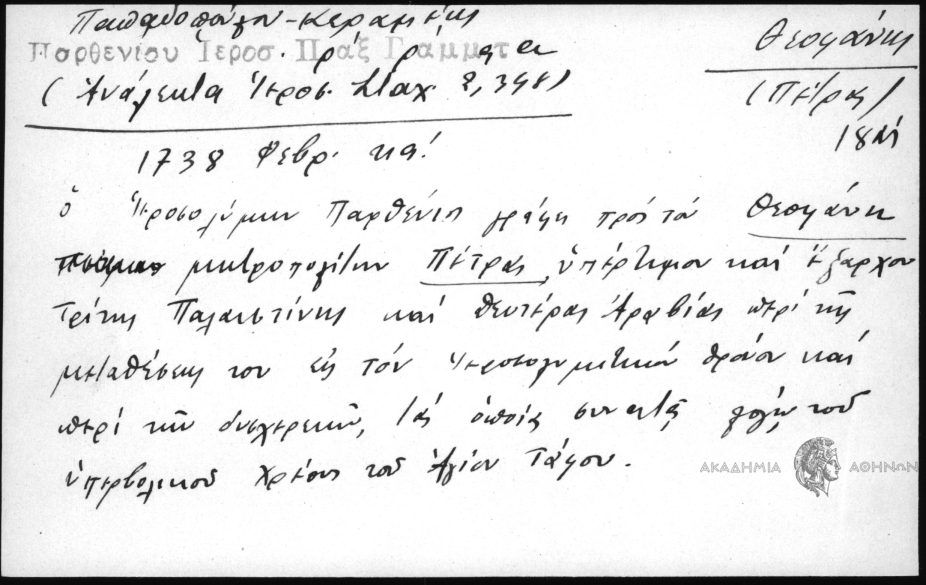 Παπαδοπούλου-Κεραμέως
Παρθενίου Ἱεροσ. Πραξ Γραμματα
(Ἀνάλεκτα Ἱεροσ. Σταχ. 2, 398)
Θεοφάνης
(Πέτρας)
18
1738 Φεβρ. κα!
ὁ Ἱεροσολύμων Παρθένιος γράφει πρός τόν Θεοφάνη
μητροπολίτην Πέτρας ὑπέρτιμον καί ἔξαρχον
τρίτης Παλαιστίνης καί δευτέρας Ἀραβίας περί τῆς
μεταθέσεώς του εἰς τόν Ἱεροσολυμιτικόν θρόνον καί
περί τῶν δυσχερειῶν, τάς ὁποίας συναντᾷ λόγῳ τοῦ
ὑπερβολικοῦ χρέους τοῦ Ἁγίου Τάφου.
ΑΚΑΔΗΜΙΑ ΑΘΗΝΩΝ